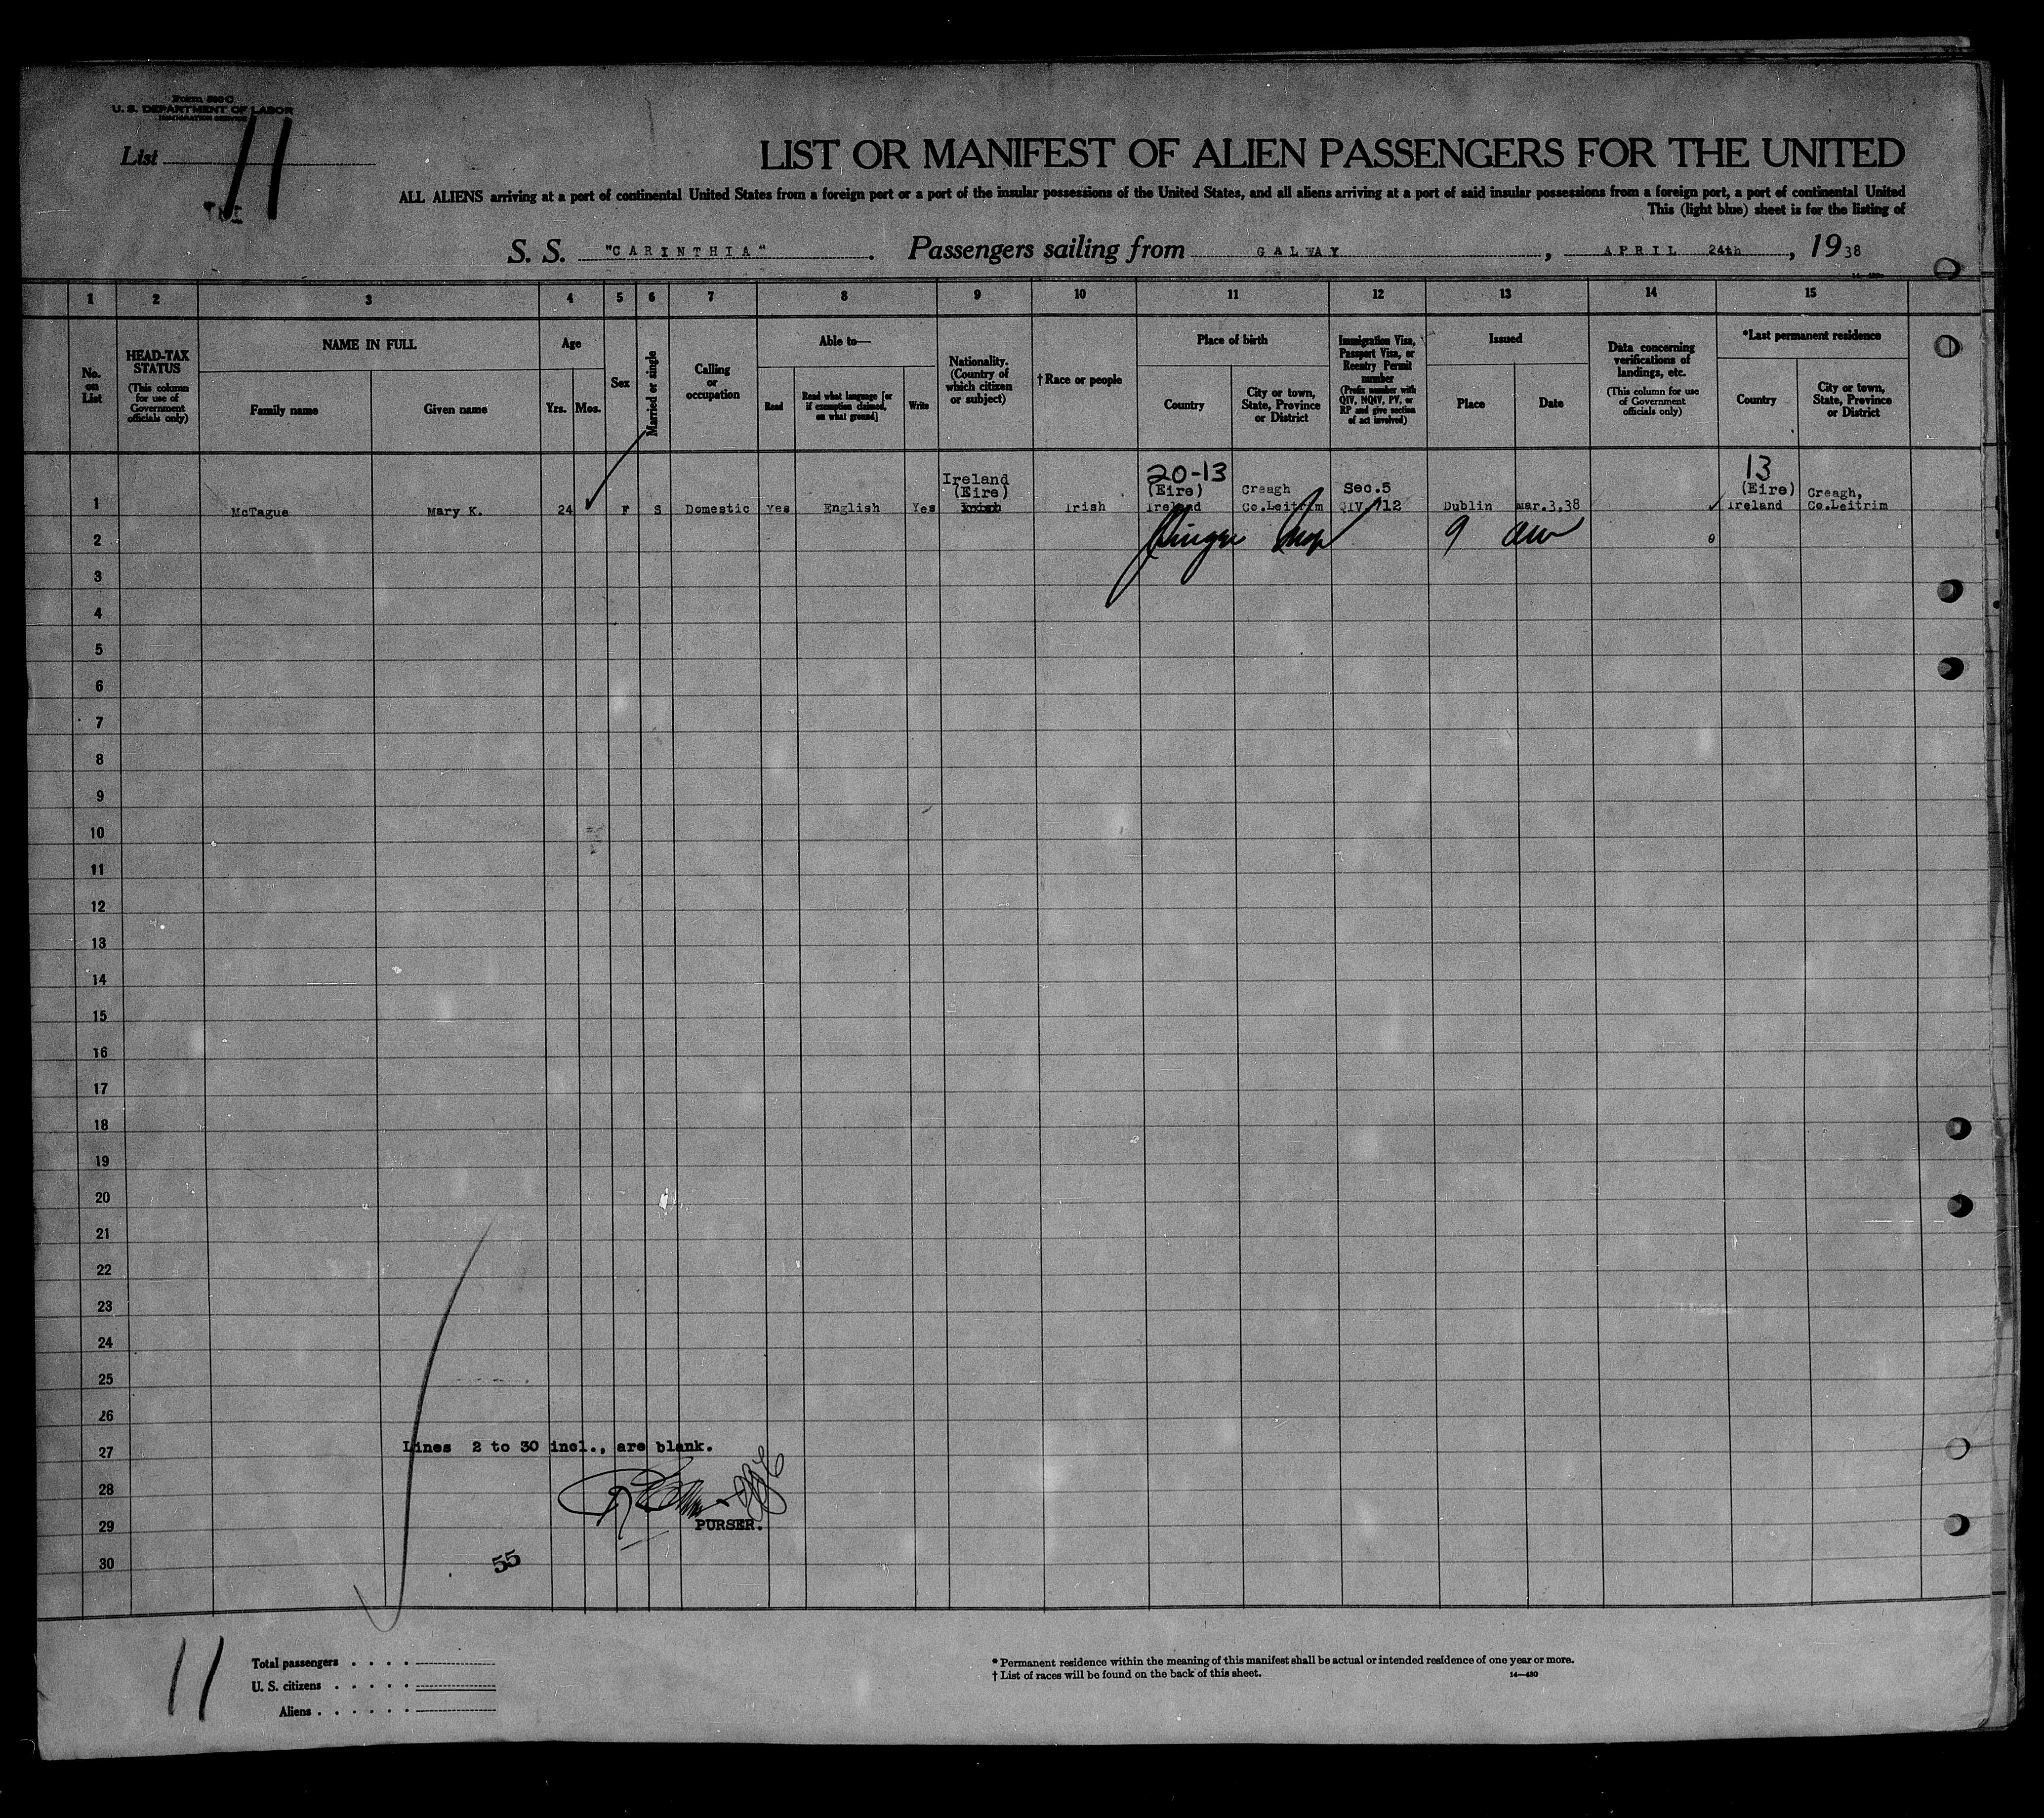 Form 500 C
U. S. DEPARTMENT OF LABOR
IMMIGRATION SERVICE
List 11
LIST OR MANIFEST OF ALIEN PASSENGERS FOR THE UNITED
ALL ALIENS arriving at a port of continental United States from a foreign port or a port of the insular possessions of the United States, and all aliens arriving at a port of said insular possessions from a foreign port, a port of continental United
This (light blue) sheet is for the listing of
S. S. "CARINTHIA". Passengers sailing from GALWAY, APRIL 24th, 1938
1 2 3 4 5 6 7 8 9 10 11 12 13 14 15
No. on List
HEAD-TAX STATUS
(This column for use of Government officials only)
NAME IN FULL
Family name
Given name
Age
Yrs. Mos.
Sex
Married or single
Calling or occupation
Able to—
Read
Read what language [or if exemption claimed, on what ground]
Write
Nationality. (Country of which citizen or subject)
†Race or people
Place of birth
Country
City or town, State, Province or District
Immigration Visa, Passport Visa, or Reentry Permit number
(Prefix number with QIV, NQIV, PV, or RP and give section of act involved)
Issued
Place
Date
Data concerning verifications of landings, etc.
(This column for use of Government officials only)
*Last permanent residence
Country
City or town, State, Province or District
20-13 13
Ireland (Eire) (Eire) Creagh Sec.5 (Eire) Creagh,
1 McTague Mary K. 24 F S Domestic Yes English Yes Irish Ireland Co.Leitrim QIV 712 Dublin Mar.3,38 Ireland Co.Leitrim
2
3
4
5
6
7
8
9
10
11
12
13
14
15
16
17
18
19
20
21
22
23
24
25
26
27
Lines 2 to 30 incl., are blank.
28
29
PURSER.
30
55
11
Total passengers
U. S. citizens
Aliens
* Permanent residence within the meaning of this manifest shall be actual or intended residence of one year or more.
† List of races will be found on the back of this sheet. 14—430